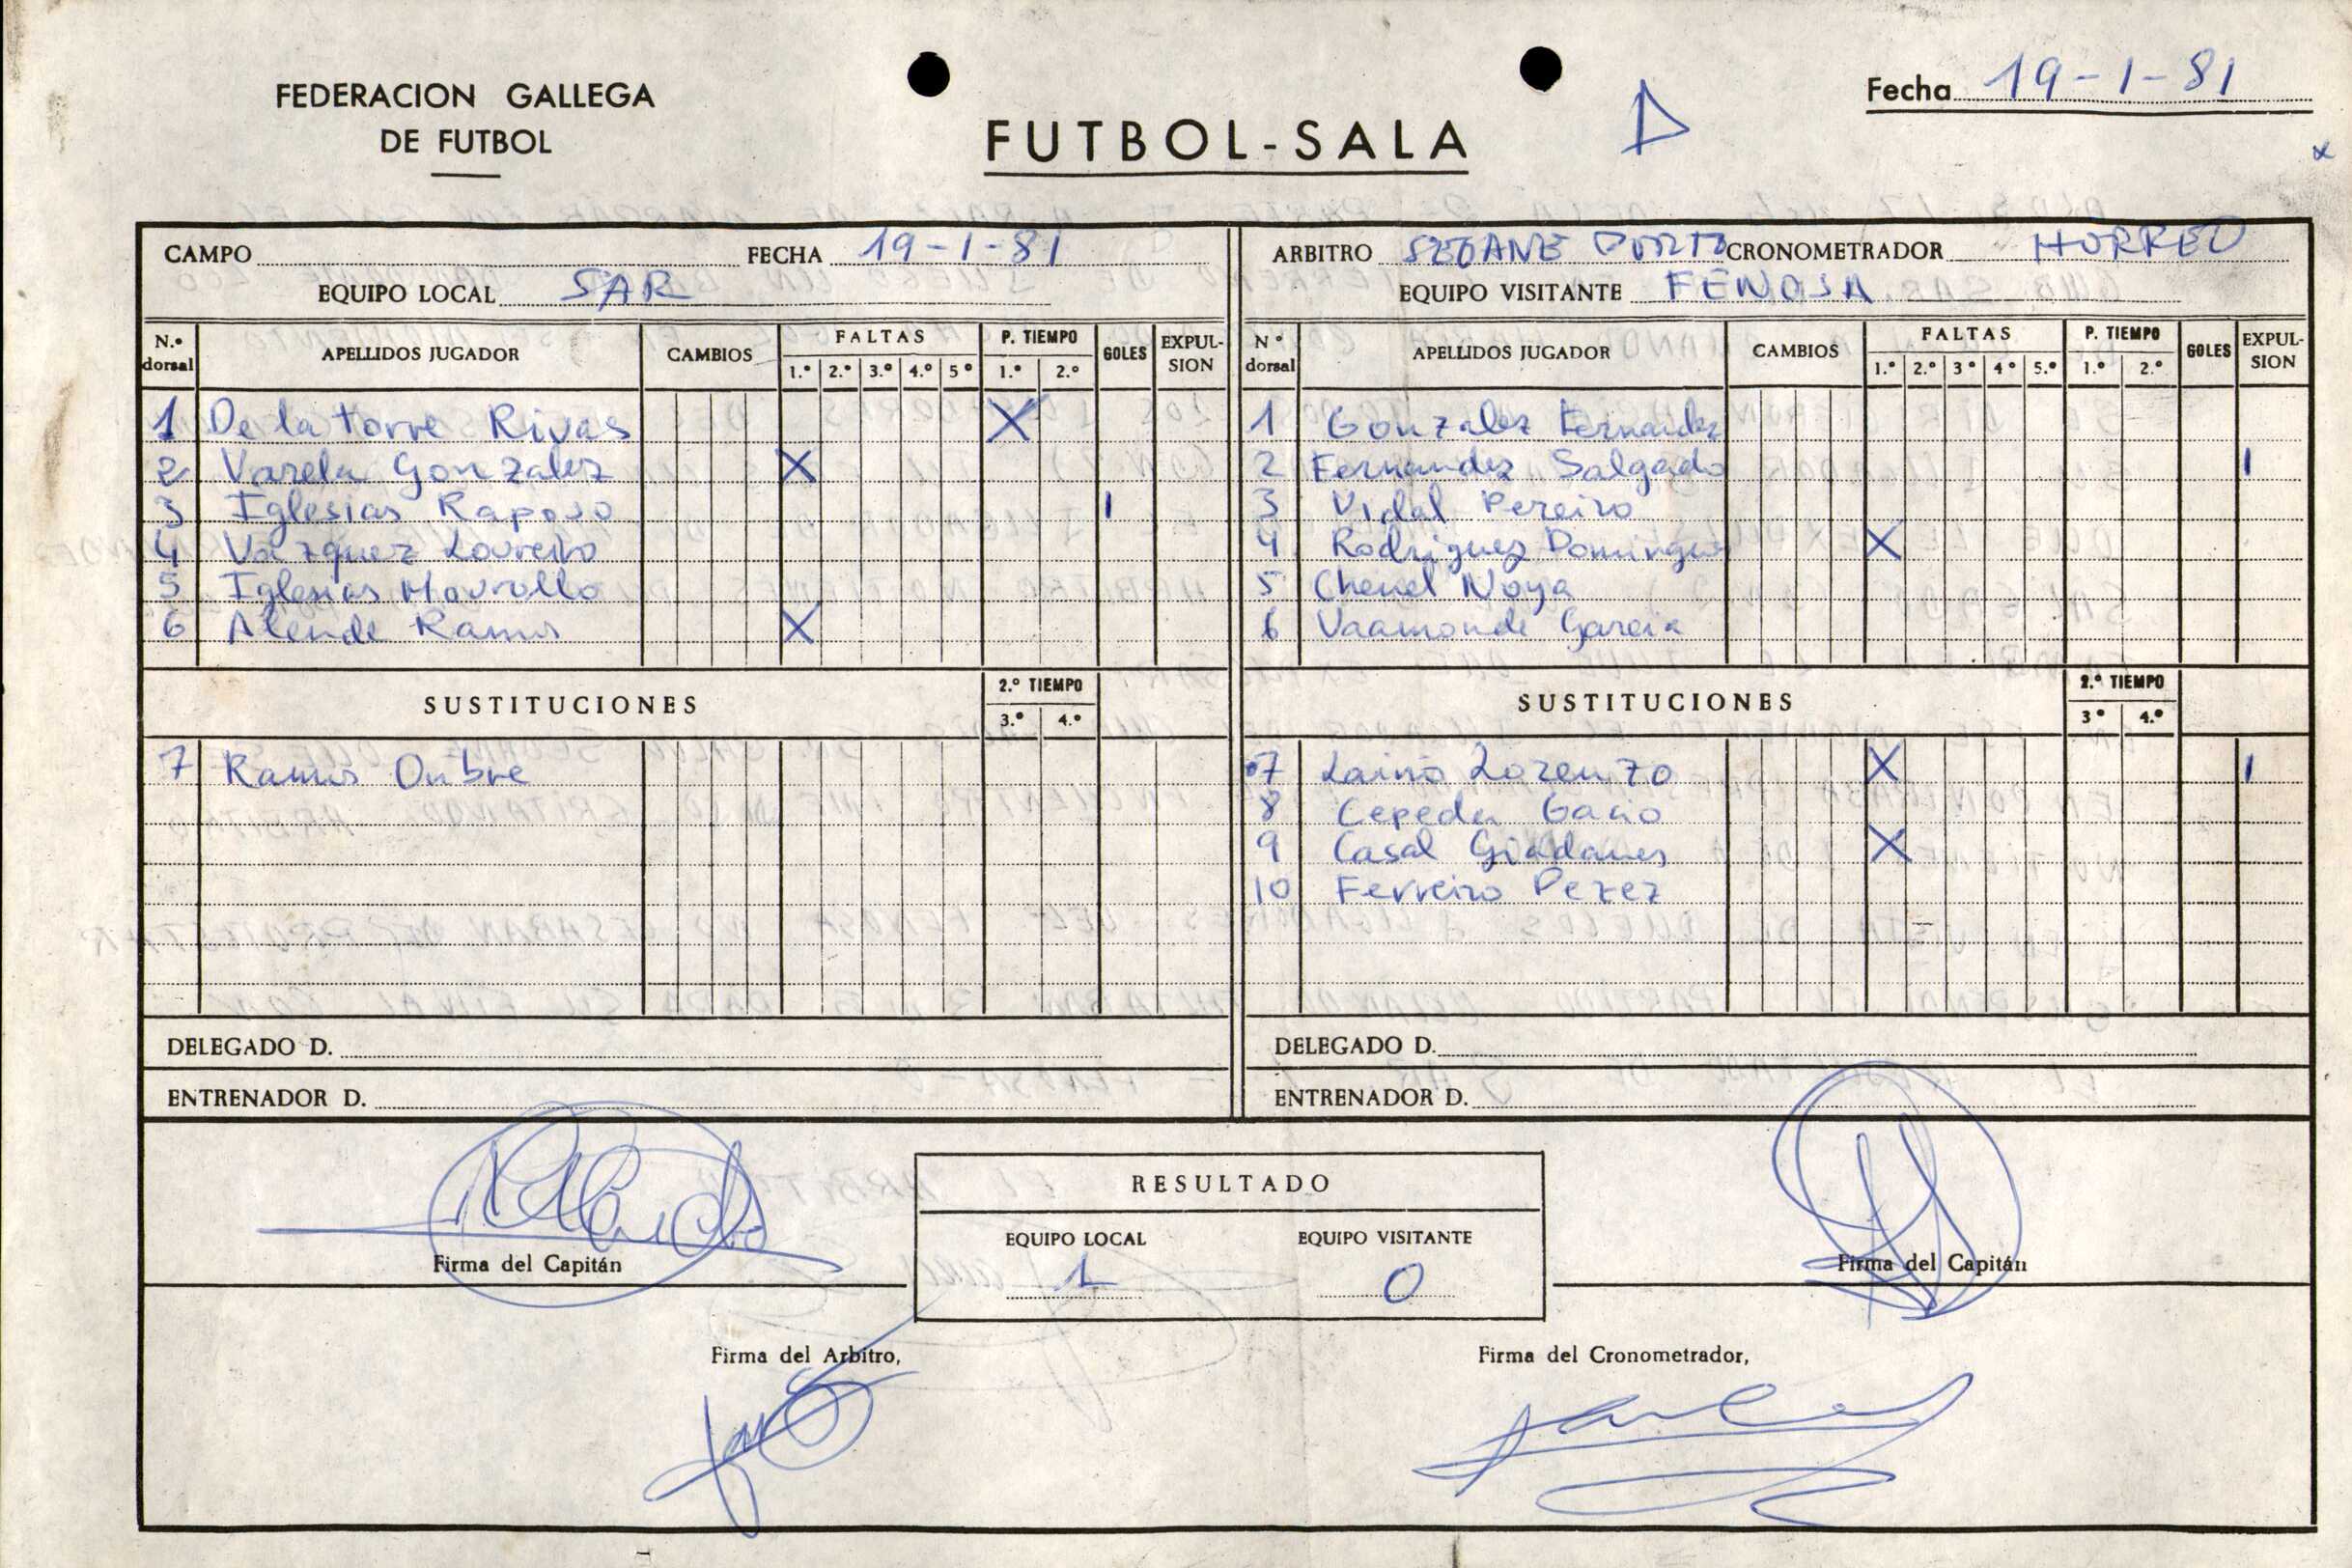 FEDERACION GALLEGA
DE FUTBOL
FUTBOL-SALA
Fecha 19-1-81
CAMPO FECHA 19-1-81
EQUIPO LOCAL SAR
ARBITRO SEOANE PORTO CRONOMETRADOR HORREO
EQUIPO VISITANTE FENOSA
N.º dorsal APELLIDOS JUGADOR CAMBIOS FALTAS 1.º 2.º 3.º 4.º 5º P. TIEMPO 1.º 2.º GOLES EXPUL-SION
1 De la torre Rivas X
2 Varela Gonzalez X
3 Iglesias Raposo 1
4 Vazquez Loureiro
5 Iglesias Mourollo
6 Alende Ramos X
SUSTITUCIONES 2.º TIEMPO 3.º 4.º
7 Ramos Oubre
DELEGADO D.
ENTRENADOR D.
Nº dorsal APELLIDOS JUGADOR CAMBIOS FALTAS 1.º 2.º 3º 4º 5.º P. TIEMPO 1.º 2.º GOLES EXPUL-SION
1 Gonzalez Fernandez
2 Fernandez Salgado 1
3 Vidal Pereiro
4 Rodriguez Dominguez X
5 Chenel Noya
6 Vaamonde Garcia
SUSTITUCIONES 2.º TIEMPO 3º 4.º
7 Laino Lorenzo X 1
8 Cepeda Gacio
9 Casal Giadanes X
10 Ferreiro Perez
DELEGADO D.
ENTRENADOR D.
RESULTADO
EQUIPO LOCAL EQUIPO VISITANTE
1 0
Firma del Capitán
Firma del Capitán
Firma del Arbitro,
Firma del Cronometrador,